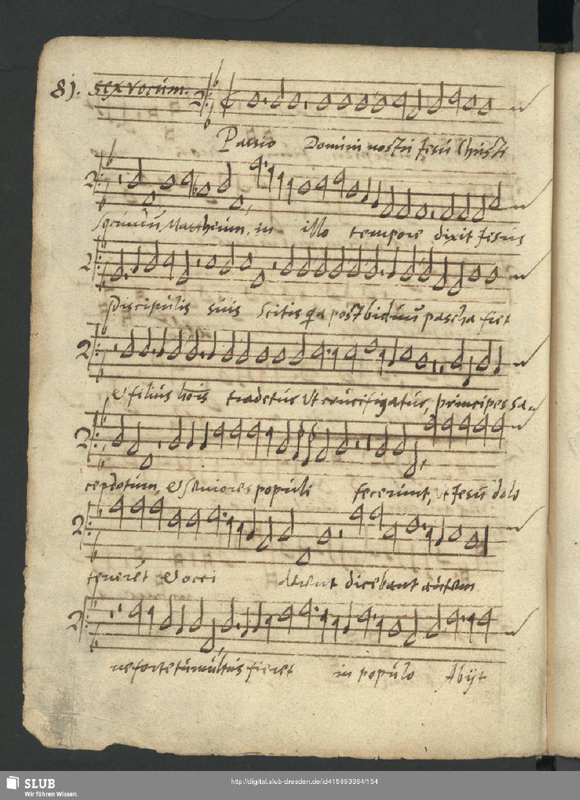 81. Sex vocum.
Passio Domini nostri Jesu Christi
Secundu Mattheum, in illo tempore dixit Jesus
Discipulis suis Scitis qa post biduu pascha fiet
& filius hois tradetur Ut crucifigatur, principes Sa
cerdotum, & Seniores populi fecerunt, ut Jesu dolo
teneret & occi derent dicebant autem
ne forte tumultus fieret in populo Abijt
SLUB
Wir führen Wissen.
http://digital.slub-dresden.de/id415893364/194